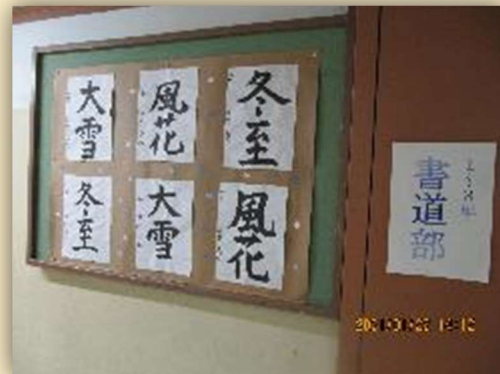 大雪
風花
冬至
冬至
大雪
風花
書道部